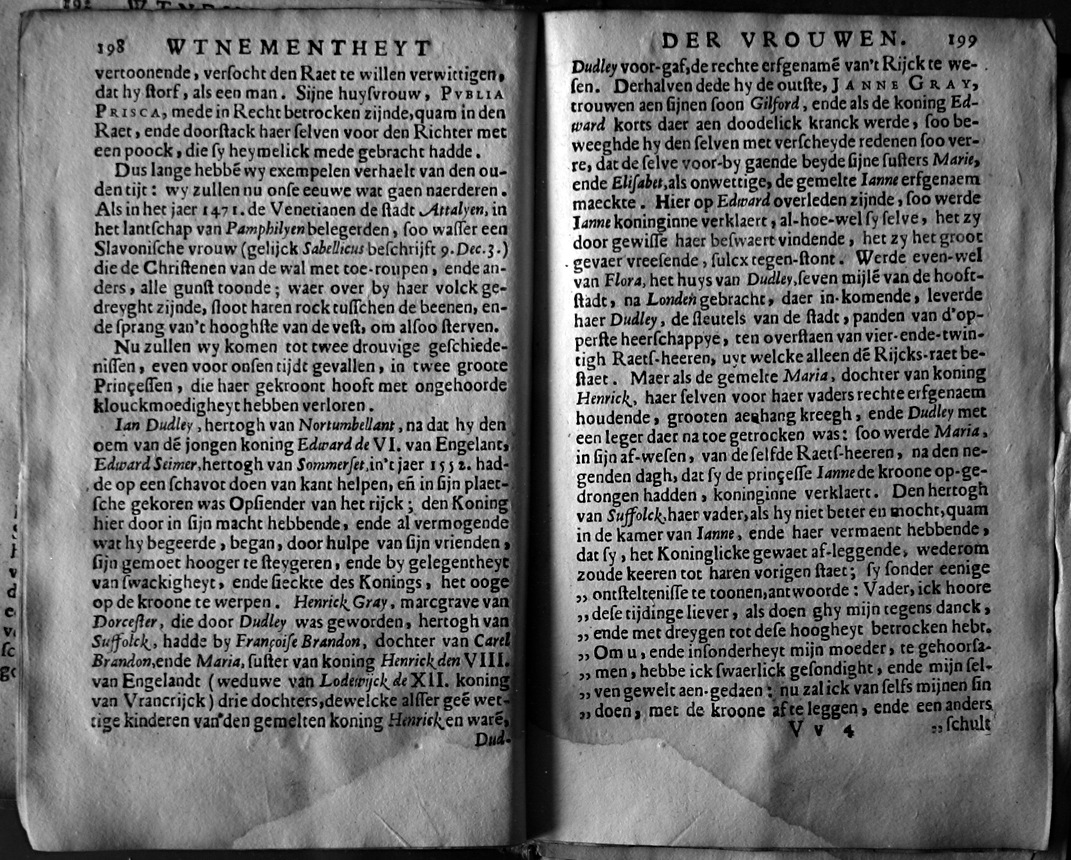 198 WTNEMENTHEYT
vertoonende, versocht den Raet te willen verwittigen,
dat hy storf, als een man. Sijne huysvrouw, PVBLIA
PRISCA, mede in Recht betrocken zijnde, quam in den
Raet, ende doorstack haer selven voor den Richter met
een poock, die sy heymelick mede gebracht hadde.
Dus lange hebbē wy exempelen verhaelt van den ou-
den tijt: wy zullen nu onse eeuwe wat gaen naerderen.
Als in het jaer 1471. de Venetianen de stadt Attalyen, in
het lantschap van Pamphilyen belegerden, soo wasser een
Slavonische vrouw (gelijck Sabellicus beschrijft 9. Dec. 3.)
die de Christenen van de wal met toe-roupen, ende an-
ders, alle gunst toonde; waer over by haer volck ge-
dreyght zijnde, sloot haren rock tusschen de beenen, en-
de sprang van't hooghste van de vest, om alsoo sterven.
Nu zullen wy komen tot twee drouvige geschiede-
nissen, even voor onsen tijdt gevallen, in twee groote
Prinçessen, die haer gekroont hooft met ongehoorde
klouckmoedigheyt hebben verloren.
Ian Dudley, hertogh van Nortumbellant, na dat hy den
oem van dē jongen koning Edward de VI. van Engelant,
Edward Seimer, hertogh van Sommerset, in't jaer 1552. had-
de op een schavot doen van kant helpen, eñ in sijn plaet-
sche gekoren was Opsiender van het rijck; den Koning
hier door in sijn macht hebbende, ende al vermogende
wat hy begeerde, began, door hulpe van sijn vrienden,
sijn gemoet hooger te steygeren, ende by gelegentheyt
van swackigheyt, ende sieckte des Konings, het ooge
op de kroone te werpen. Henrick Gray, marcgrave van
Dorcester, die door Dudley was geworden, hertogh van
Suffolck, hadde by Françoise Brandon, dochter van Carel
Brandon, ende Maria, suster van koning Henrick den VIII.
van Engelandt (weduwe van Lodewijck de XII. koning
van Vrancrijck) drie dochters, dewelcke alsser geē wet-
tige kinderen van den gemelten koning Henrick en warē,
Dud-
DER VROUWEN. 199
Dudley voor-gaf, de rechte erfgenamē van't Rijck te we-
sen. Derhalven dede hy de outste, JANNE GRAY,
trouwen aen sijnen soon Gilford, ende als de koning Ed-
ward korts daer aen doodelick kranck werde, soo be-
weeghde hy den selven met verscheyde redenen soo ver-
re, dat de selve voor-by gaende beyde sijne susters Marie,
ende Elisabet, als onwettige, de gemelte Ianne erfgenaem
maeckte. Hier op Edward overleden zijnde, soo werde
Ianne koninginne verklaert, al-hoe-wel sy selve, het zy
door gewisse haer beswaert vindende, het zy het groot
gevaer vreesende, sulcx tegen-stont. Werde even-wel
van Flora, het huys van Dudley, seven mijlē van de hooft-
stadt, na Londen gebracht, daer in-komende, leverde
haer Dudley, de sleutels van de stadt, panden van d'op-
perste heerschappye, ten overstaen van vier-ende-twin-
tigh Raets-heeren, uyt welcke alleen dē Rijcks-raet be-
staet. Maer als de gemelte Maria, dochter van koning
Henrick, haer selven voor haer vaders rechte erfgenaem
houdende, grooten aenhang kreegh, ende Dudley met
een leger daer na toe getrocken was: soo werde Maria,
in sijn af-wesen, van de selfde Raets-heeren, na den ne-
genden dagh, dat sy de prinçesse Ianne de kroone op-ge-
drongen hadden, koninginne verklaert. Den hertogh
van Suffolck, haer vader, als hy niet beter en mocht, quam
in de kamer van Ianne, ende haer vermaent hebbende,
dat sy, het Koninglicke gewaet af-leggende, wederom
zoude keeren tot haren vorigen staet; sy sonder eenige
,, ontsteltenisse te toonen, antwoorde: Vader, ick hoore
,, dese tijdinge liever, als doen ghy mijn tegens danck,
,, ende met dreygen tot dese hoogheyt betrocken hebt.
,, Om u, ende insonderheyt mijn moeder, te gehoorsa-
,, men, hebbe ick swaerlick gesondight, ende mijn sel-
,, ven gewelt aen-gedaen; nu zal ick van selfs mijnen sin
,, doen, met de kroone af te leggen, ende een anders
V v 4 ,, schult